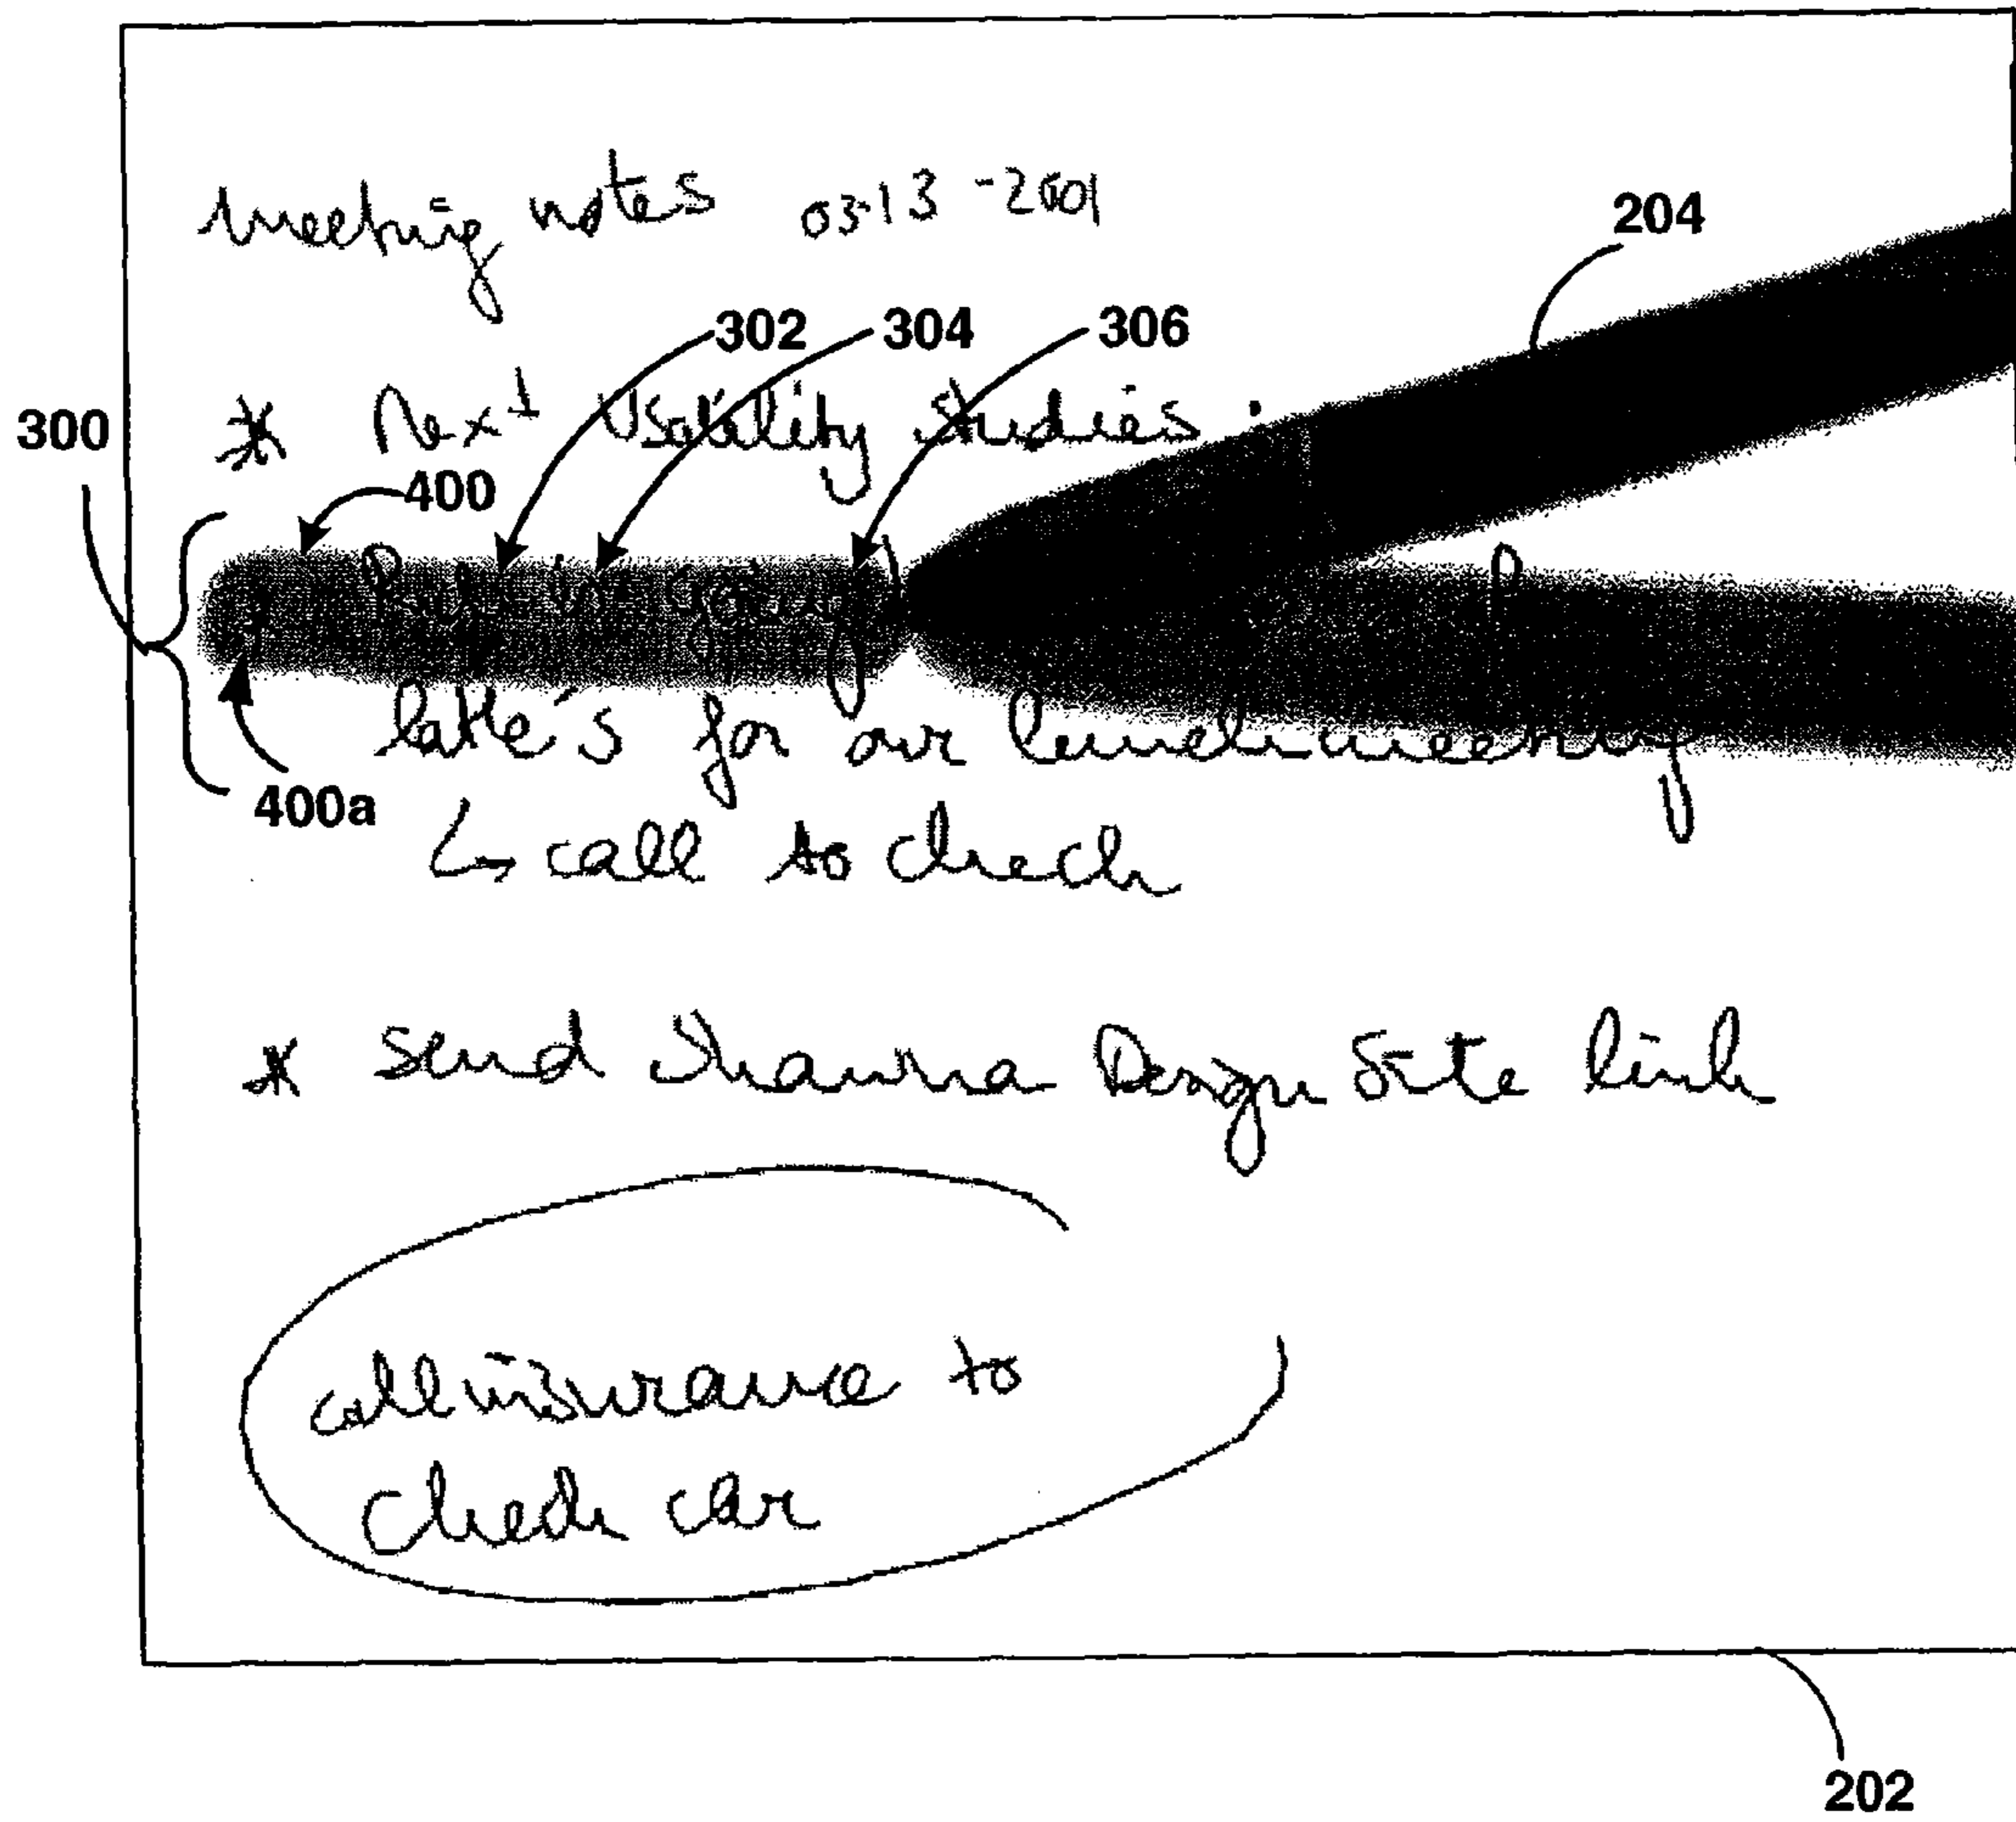 meeting notes 03-13-2001
204
302 304 306
* Next Usability Studies :
300
400
latte's for our lunch meeting
400a
↳ call to check
* send Shanna Design Site link
call insurance to
check car
202